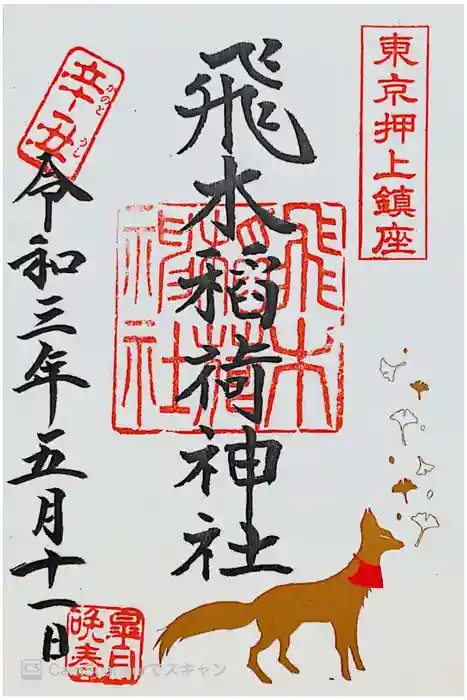 東京押上鎮座
飛木稲荷神社
飛木稲荷神社
辛丑
かのと うし
令和三年五月十一日
晩春
CS CamScannerでスキャン